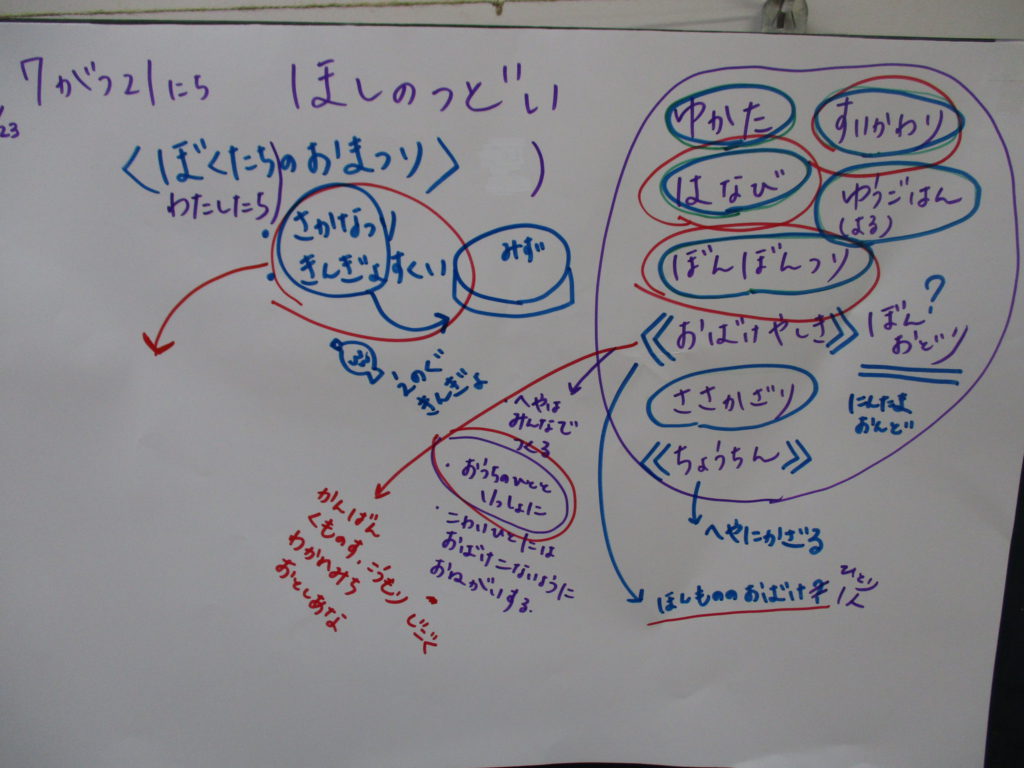 7がつ21にち
ほしのつどい
23
〈ぼくたちのおまつり〉
わたしたち
・さかなつり
・きんぎょすくい
みず
えのぐ
きんぎょ
ゆかた
すいかわり
はなび
ゆうごはん
(よる)
ぼんぼんつり
《おばけやしき》
ぼん?
おどり
にんたま
おんど
ささかざり
《ちょうちん》
へやにかざる
・へやは
みんなで
つくる
・おうちのひとと
いっしょに
・こわいひとには
おばけこないように
おねがいする.
かんばん
くものす、こうもり
わかれみち
じごく
おとしあな
ほしもののおばけ
ひとり
1人